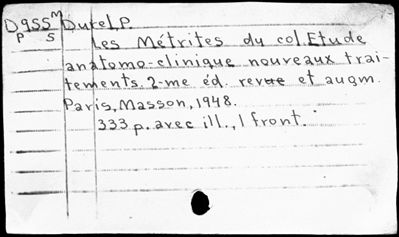 D955 M Durel, P.
P S Les Métrites du col. Etude
anatomo-clinique nouveaux trai-
tements. 2-me éd. revue et augm.
Paris, Masson, 1948.
333 p. avec ill., 1 front.